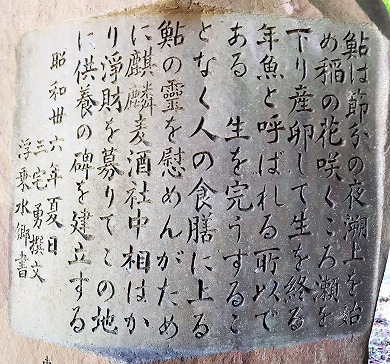 鮎は節分の夜溯上を始
め稲の花咲くころ瀬を
下り産卵して生を終る
年魚と呼ばれる所以で
ある　生を完うするこ
となく人の食膳に上る
鮎の霊を慰めんがため
に麒麟麦酒社中相はか
り淨財を募りてこの地
に供養の碑を建立する
昭和卅六年夏日
三宅勇撰文
浮乗水郷書